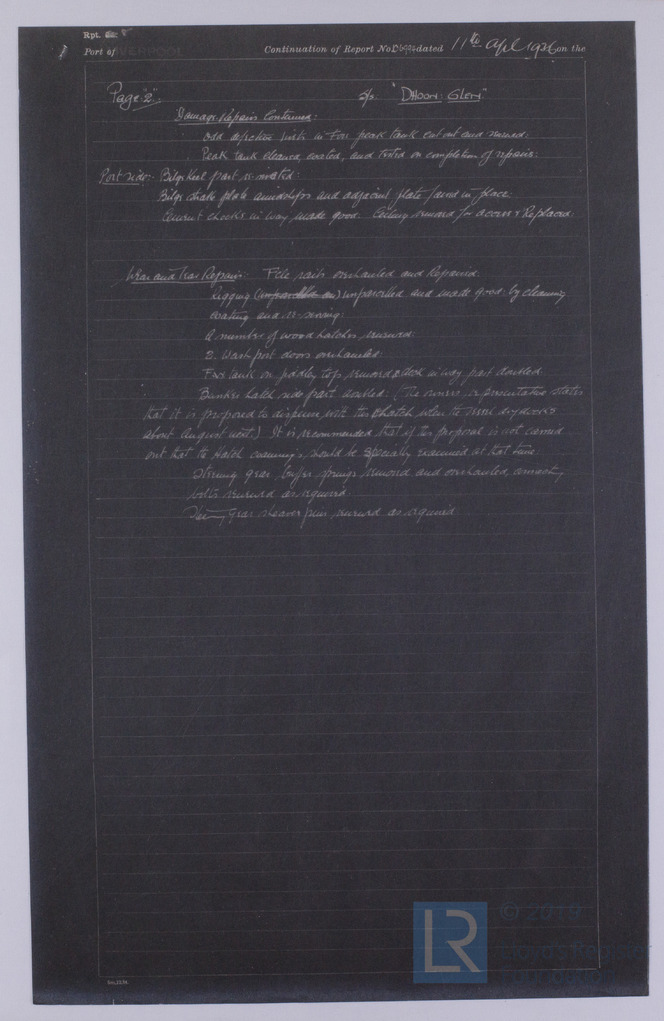 Rpt. 8
Port of LIVERPOOL Continuation of Report No. dated 11th April 1936 on the
Page "2". s/s "DHOON GLEN"
Damage Repairs Continued:
Odd defective rivets in Fore peak tank cut out and renewed.
Peak tank cleaned, coated, and tested on completion of repairs.
Port side:- Bilge keel part re-riveted:
Bilge strake plate amidships and adjacent plate faired in place.
Cement chocks in way made good. Ceiling removed for access & Replaced.
Wear and Tear Repairs: Fcle rails overhauled and Repaired.
Rigging unparcelled and made good by cleaning
coating and re-serving:
A number of wood hatches renewed:
2. Wash port doors overhauled:
F.W. tank on fiddley top removed & deck in way part doubled.
Bunker hatch side part doubled: (The owners representative states
that it is proposed to dispense with this hatch when the vessel drydocks
about August next.) It is recommended that if this proposal is not carried
out that the Hatch coamings should be specially examined at that time.
Steering gear buffer springs removed and overhauled, connecting
bolts renewed as required.
gear sheaves pins renewed as required
LR © 2019
Lloyd's Register
Foundation